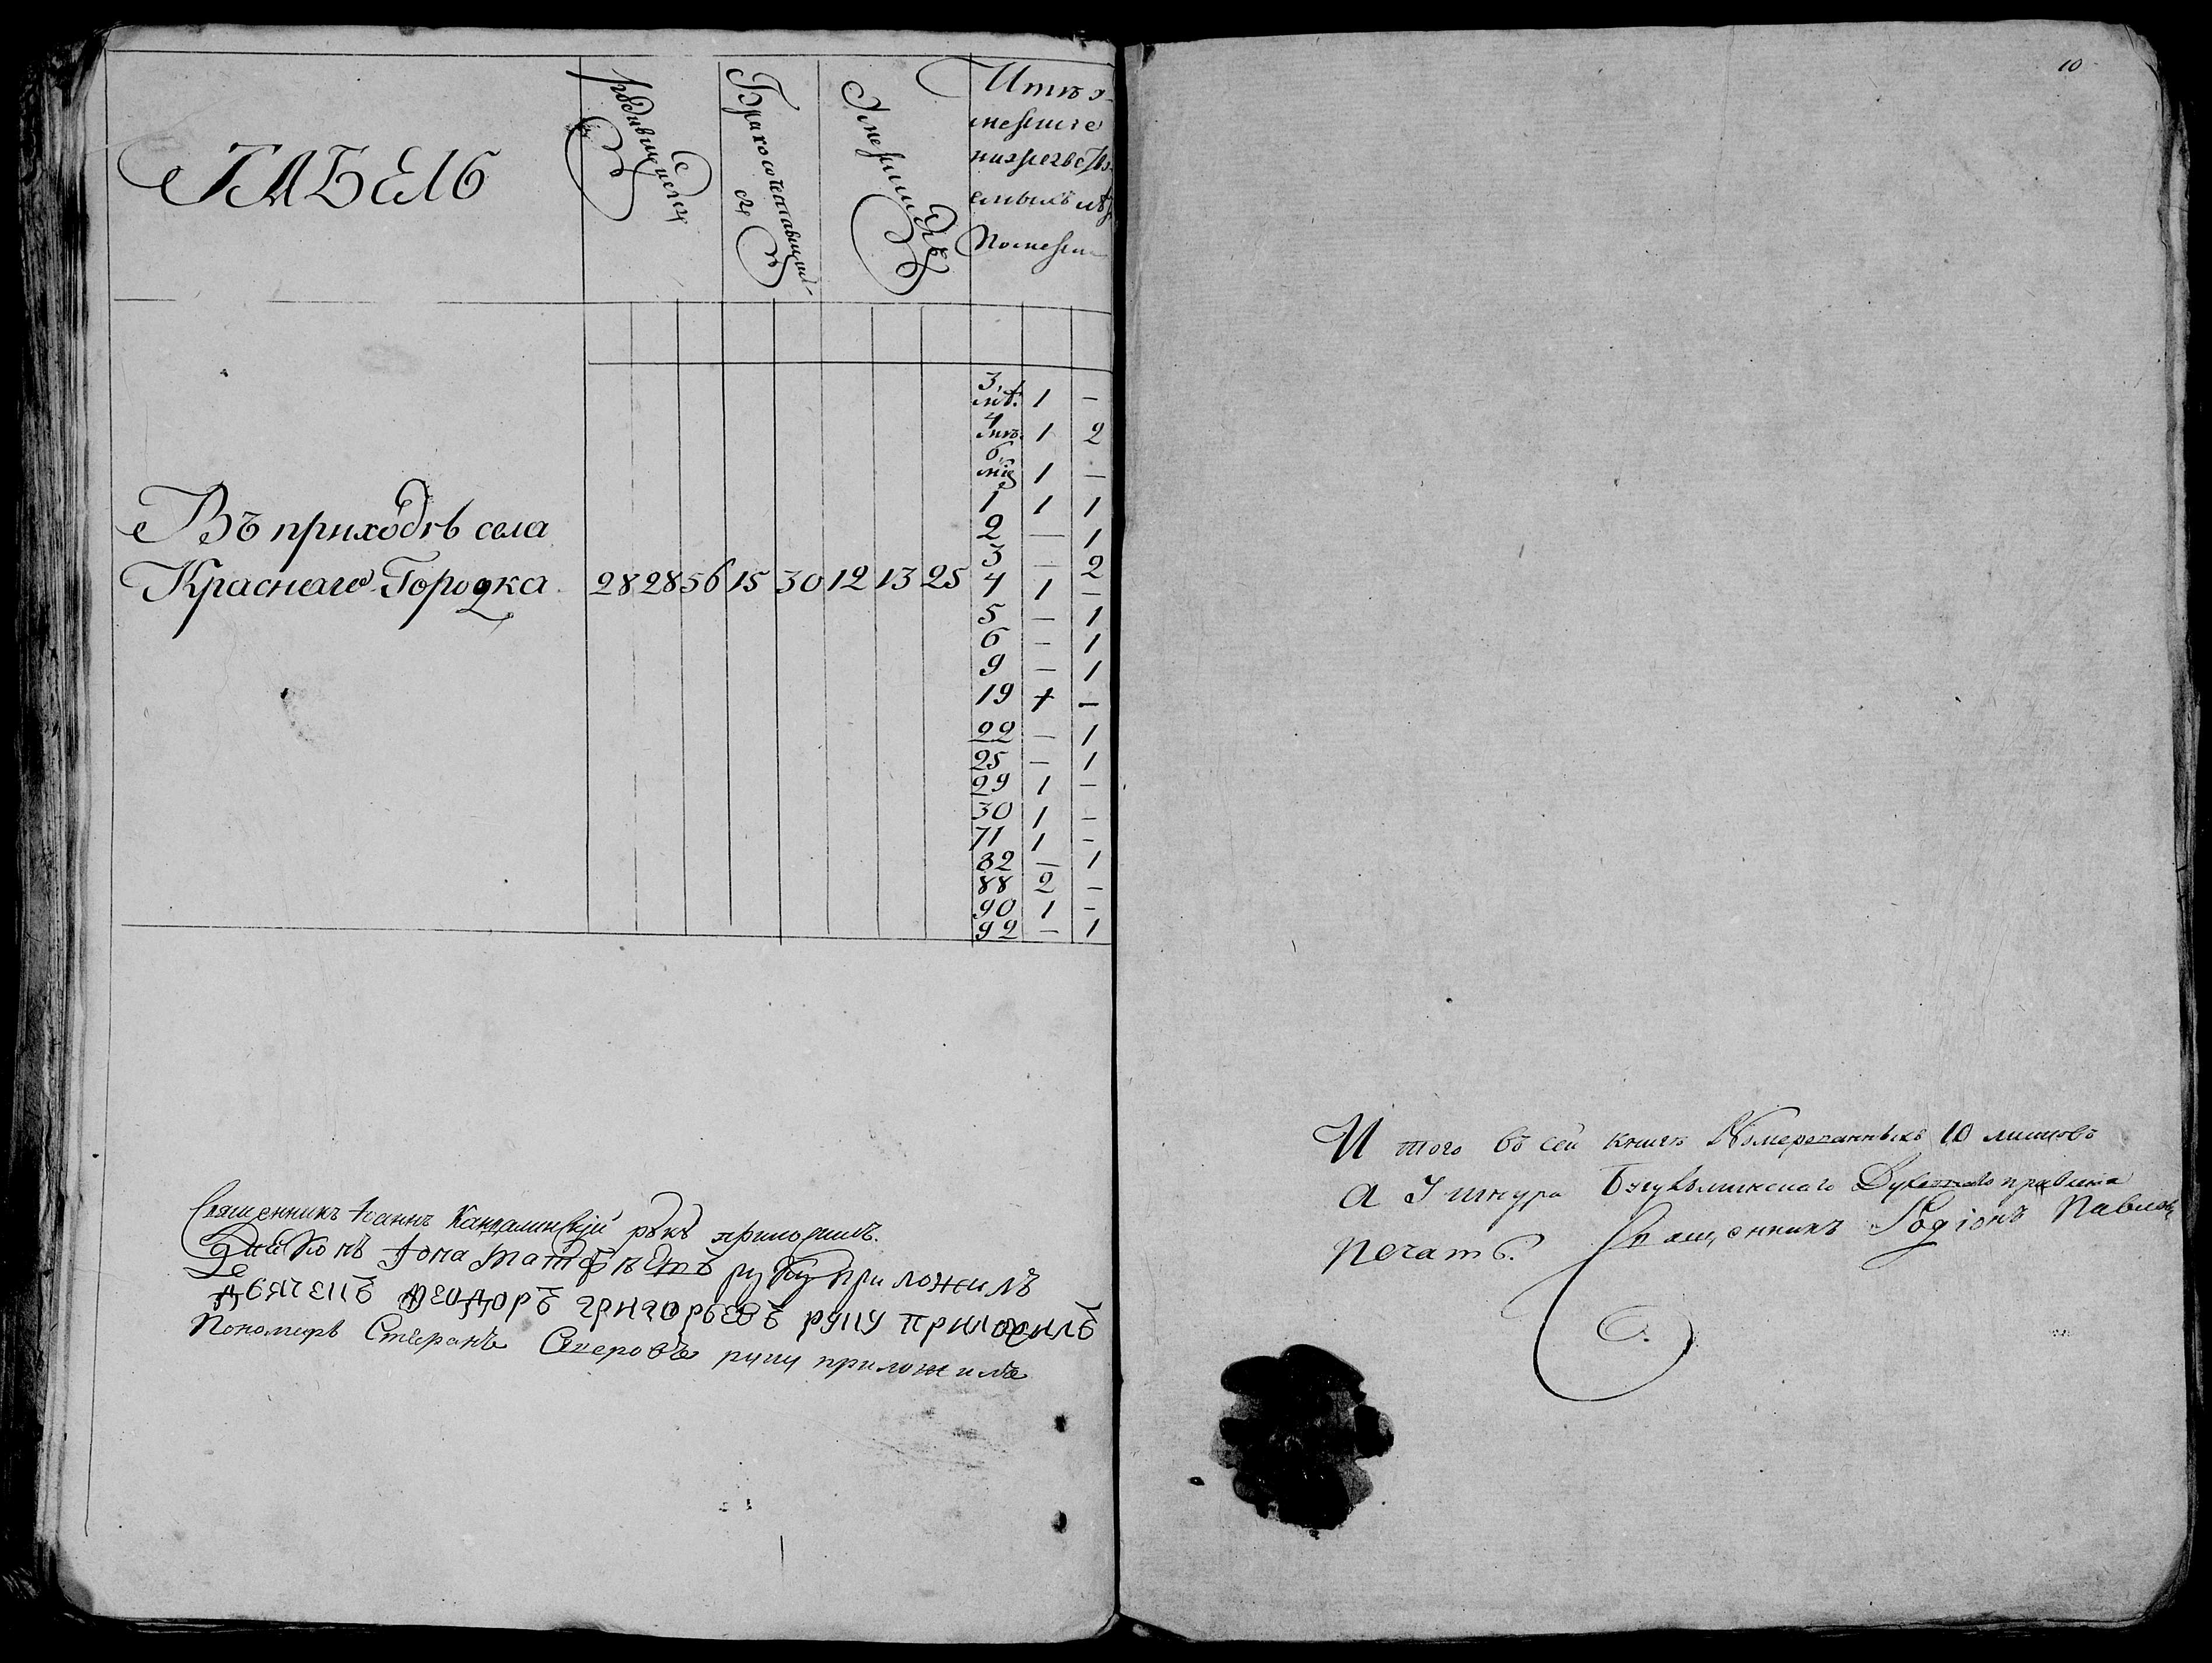 10
ТАБЕЛЬ
родившиеся
Бракосочетавшихся
Умершихъ
Въ приходѣ села
Краснаго Городка 28 28 56 15 30 12 13 25
3 мѣ. 1 —
4 1 2
6 1 —
1 1 1
2 — 1
3 — 2
4 1 —
5 — 1
6 — 1
9 — 1
19 1 —
22 — 1
25 — 1
29 1 —
30 1 —
71 1 —
82 — 1
88 2 —
90 1 —
92 — 1
Священникъ Іоаннъ приложилъ.
Діаконъ Іона руку приложилъ
Дьячекъ Феодоръ Григорьевъ руку приложилъ
Пономарь Стефанъ руку приложилъ
И того въ сей книгѣ Номерованныхъ 10 листовъ
А Шнура Бугульминскаго Духовнаго правления
Печать. Священникъ Родіонъ Павловъ